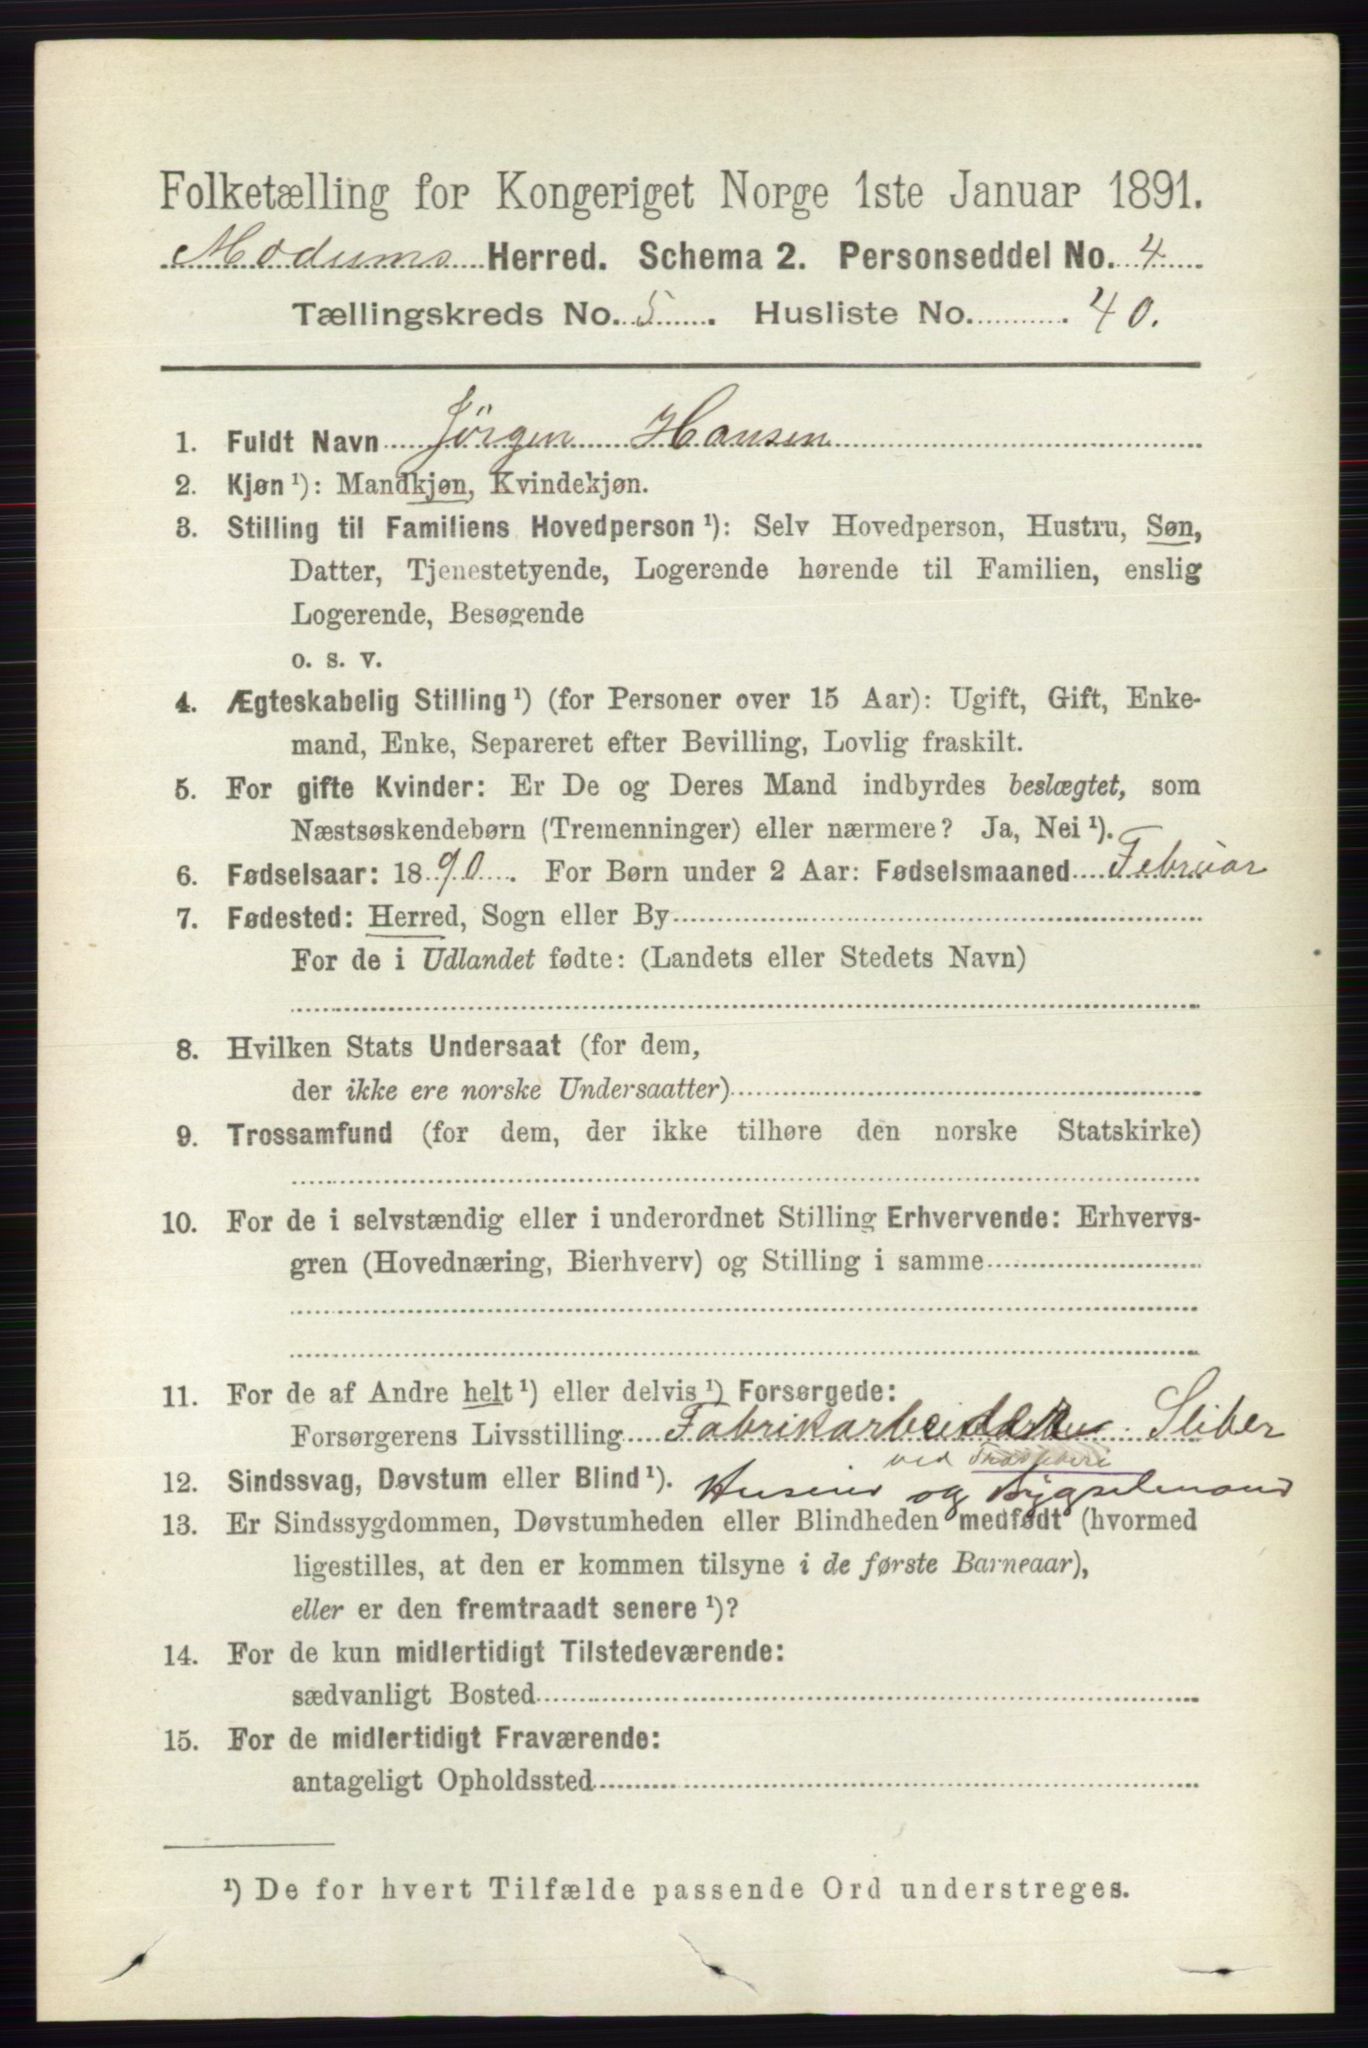 Folketælling for Kongeriget Norge 1ste Januar 1891.
Modums Herred. Schema 2. Personseddel No. 4
Tællingskreds No. 5. Husliste No. 40.
1. Fuldt Navn Jörgen Hansen
2. Kjøn ¹): Mandkjøn, Kvindekjøn.
3. Stilling til Familiens Hovedperson ¹): Selv Hovedperson, Hustru, Søn,
Datter, Tjenestetyende, Logerende hørende til Familien, enslig
Logerende, Besøgende
o. s. v.
4. Ægteskabelig Stilling ¹) (for Personer over 15 Aar): Ugift, Gift, Enke-
mand, Enke, Separeret efter Bevilling, Lovlig fraskilt.
5. For gifte Kvinder: Er De og Deres Mand indbyrdes beslægtet, som
Næstsøskendebørn (Tremenninger) eller nærmere? Ja, Nei ¹).
6. Fødselsaar: 1890. For Børn under 2 Aar: Fødselsmaaned Februar
7. Fødested: Herred, Sogn eller By
For de i Udlandet fødte: (Landets eller Stedets Navn)
8. Hvilken Stats Undersaat (for dem,
der ikke ere norske Undersaatter)
9. Trossamfund (for dem, der ikke tilhøre den norske Statskirke)
10. For de i selvstændig eller i underordnet Stilling Erhvervende: Erhvervs-
gren (Hovednæring, Bierhverv) og Stilling i samme
11. For de af Andre helt ¹) eller delvis ¹) Forsørgede:
Forsørgerens Livsstilling Fabrikarbeider Sliber
ved Træsliberi
12. Sindssvag, Døvstum eller Blind ¹). Huseier og Bygselmand
13. Er Sindssygdommen, Døvstumheden eller Blindheden medfødt (hvormed
ligestilles, at den er kommen tilsyne i de første Barneaar),
eller er den fremtraadt senere ¹)?
14. For de kun midlertidigt Tilstedeværende:
sædvanligt Bosted
15. For de midlertidigt Fraværende:
antageligt Opholdssted
¹) De for hvert Tilfælde passende Ord understreges.